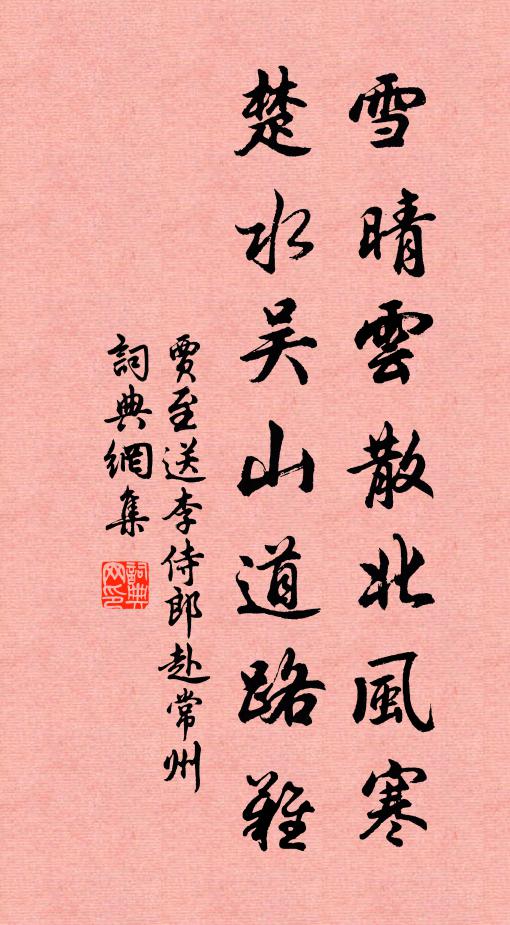 雪晴雲散北風寒
楚水吴山道路難
賈至送李侍郎赴常州
詞典網集
詞典網印